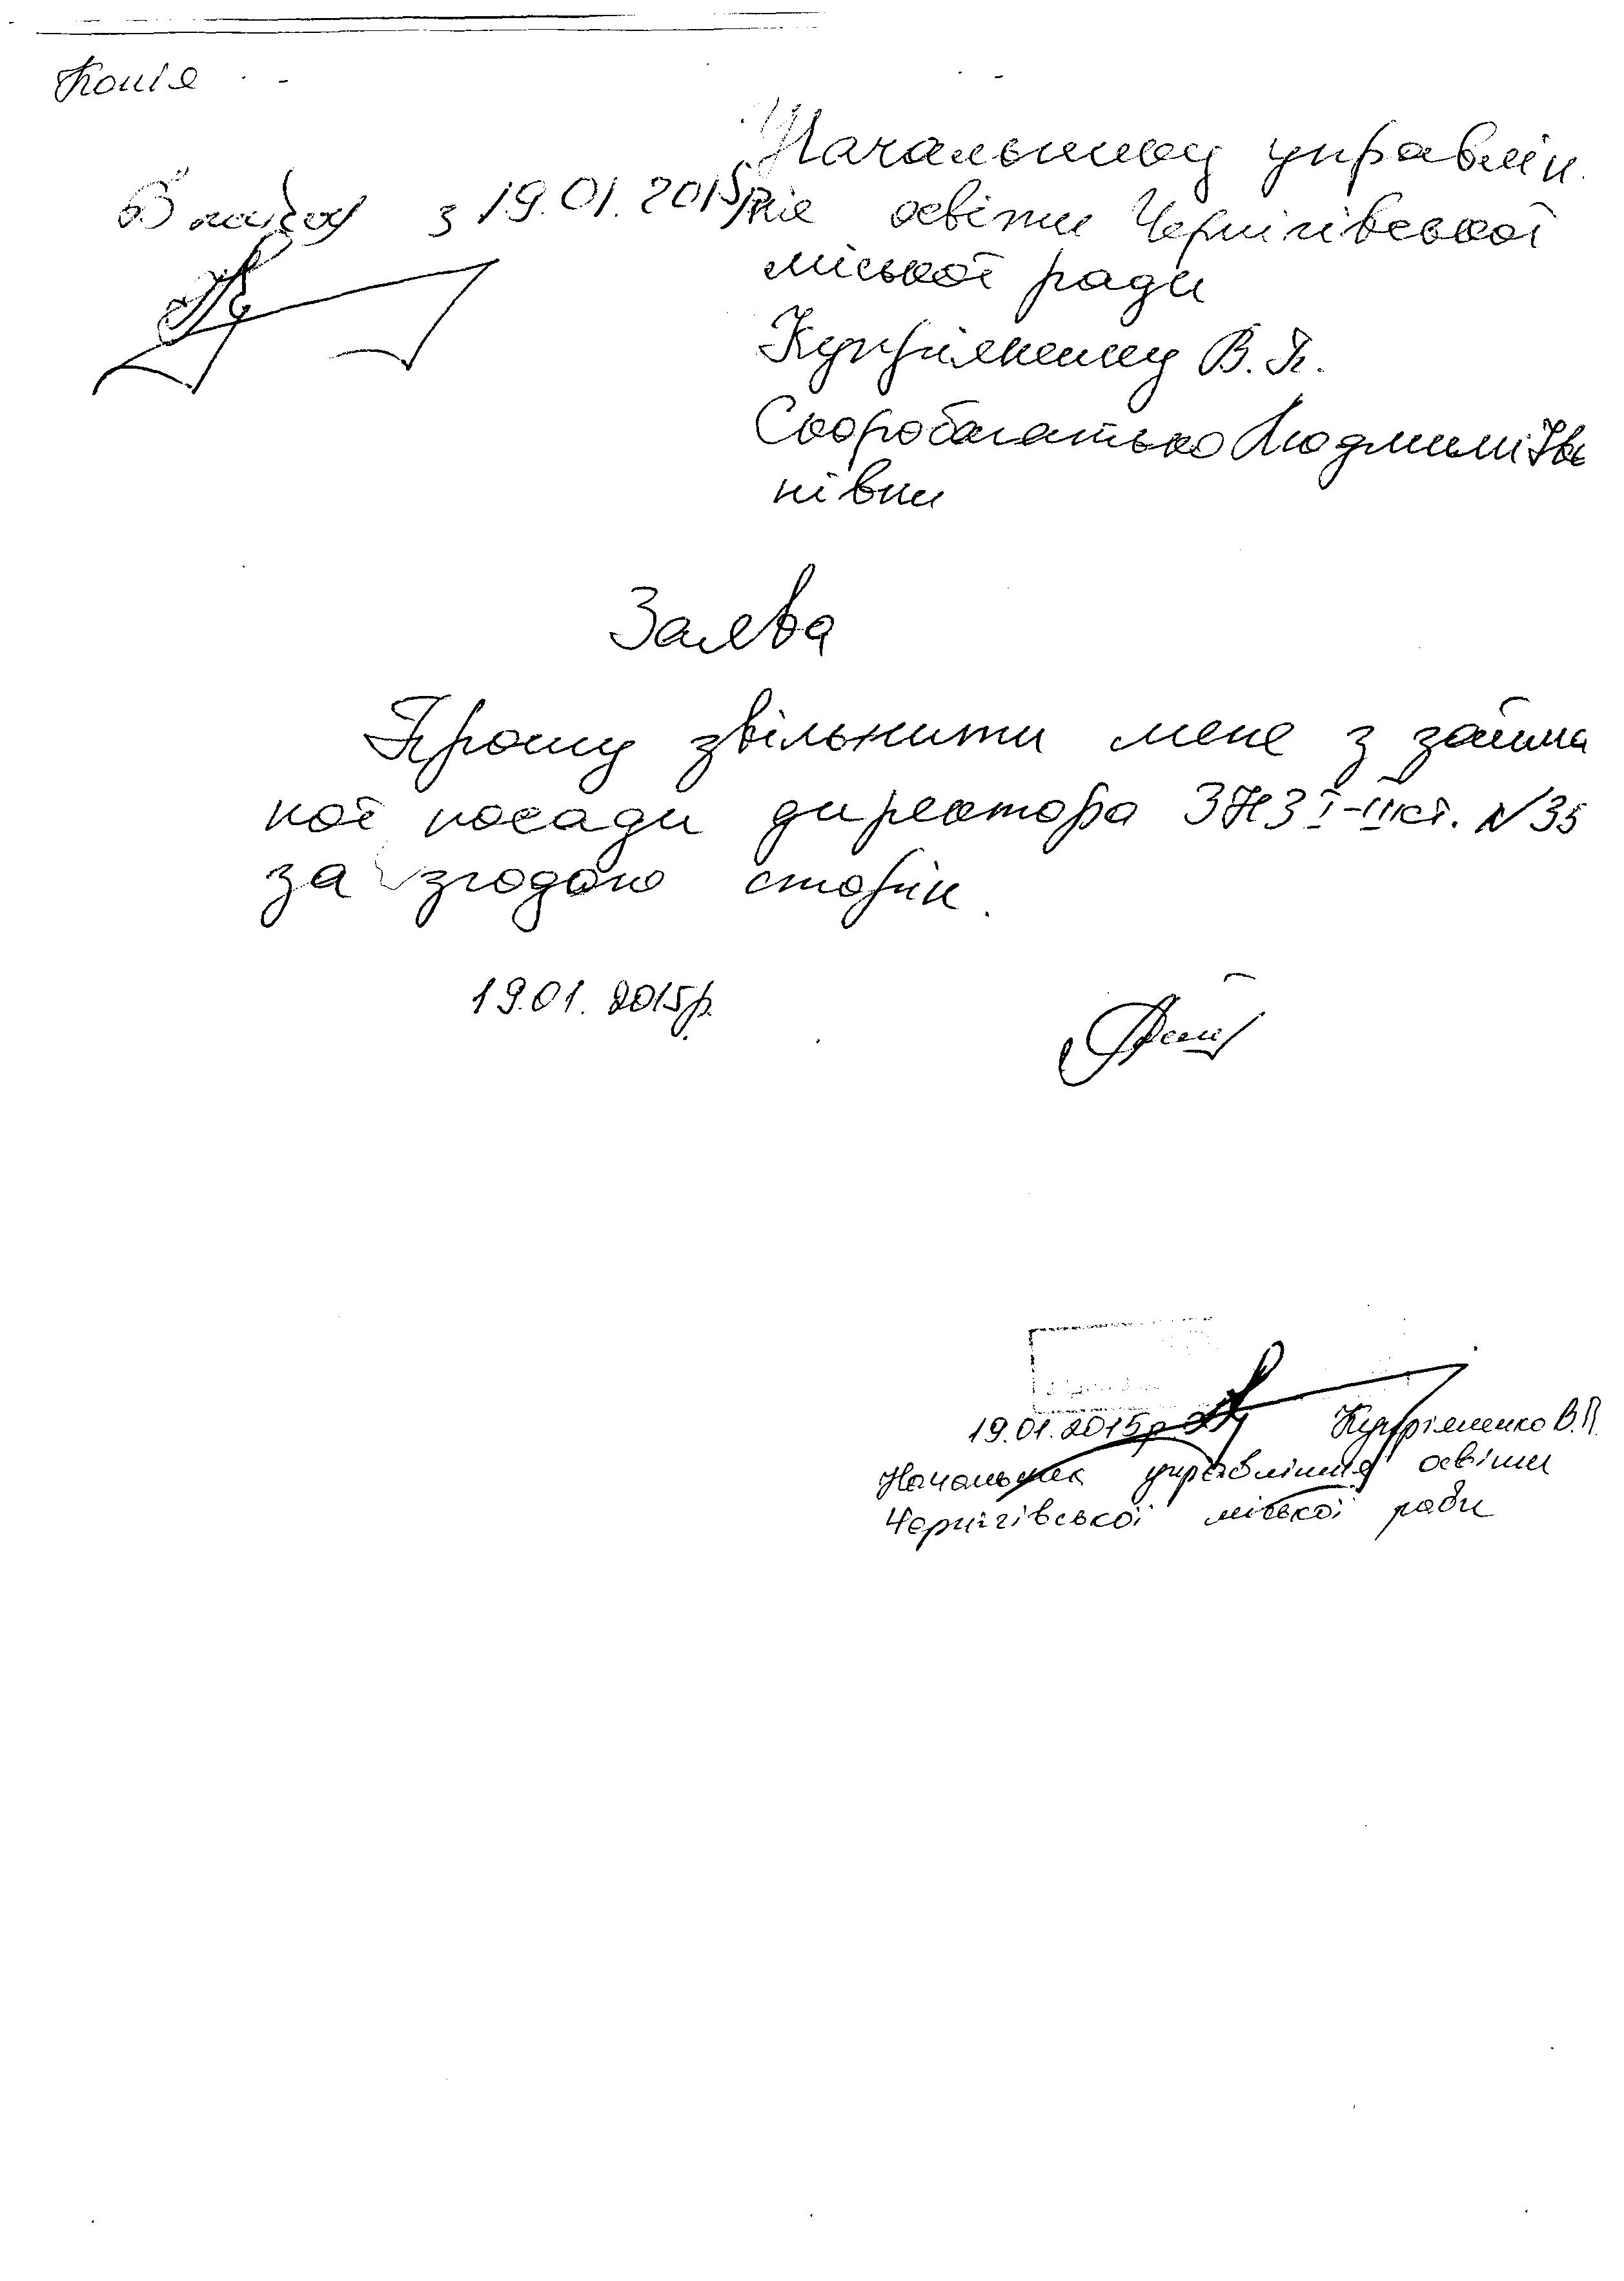 Копія
В наказ з 19.01.2015р
Начальнику управлін
ня освіти Чернігівської
міської ради
Купріяненку В.П.
Скоробагатько Людмили Іва
нівни
Заява
Прошу звільнити мене з займа
ної посади директора ЗНЗ І-ІІІ ст. N 35
за згодою сторін.
19.01.2015р.
19.01.2015р Купріяненко В.П.
Начальник управління освіти
Чернігівської міської ради